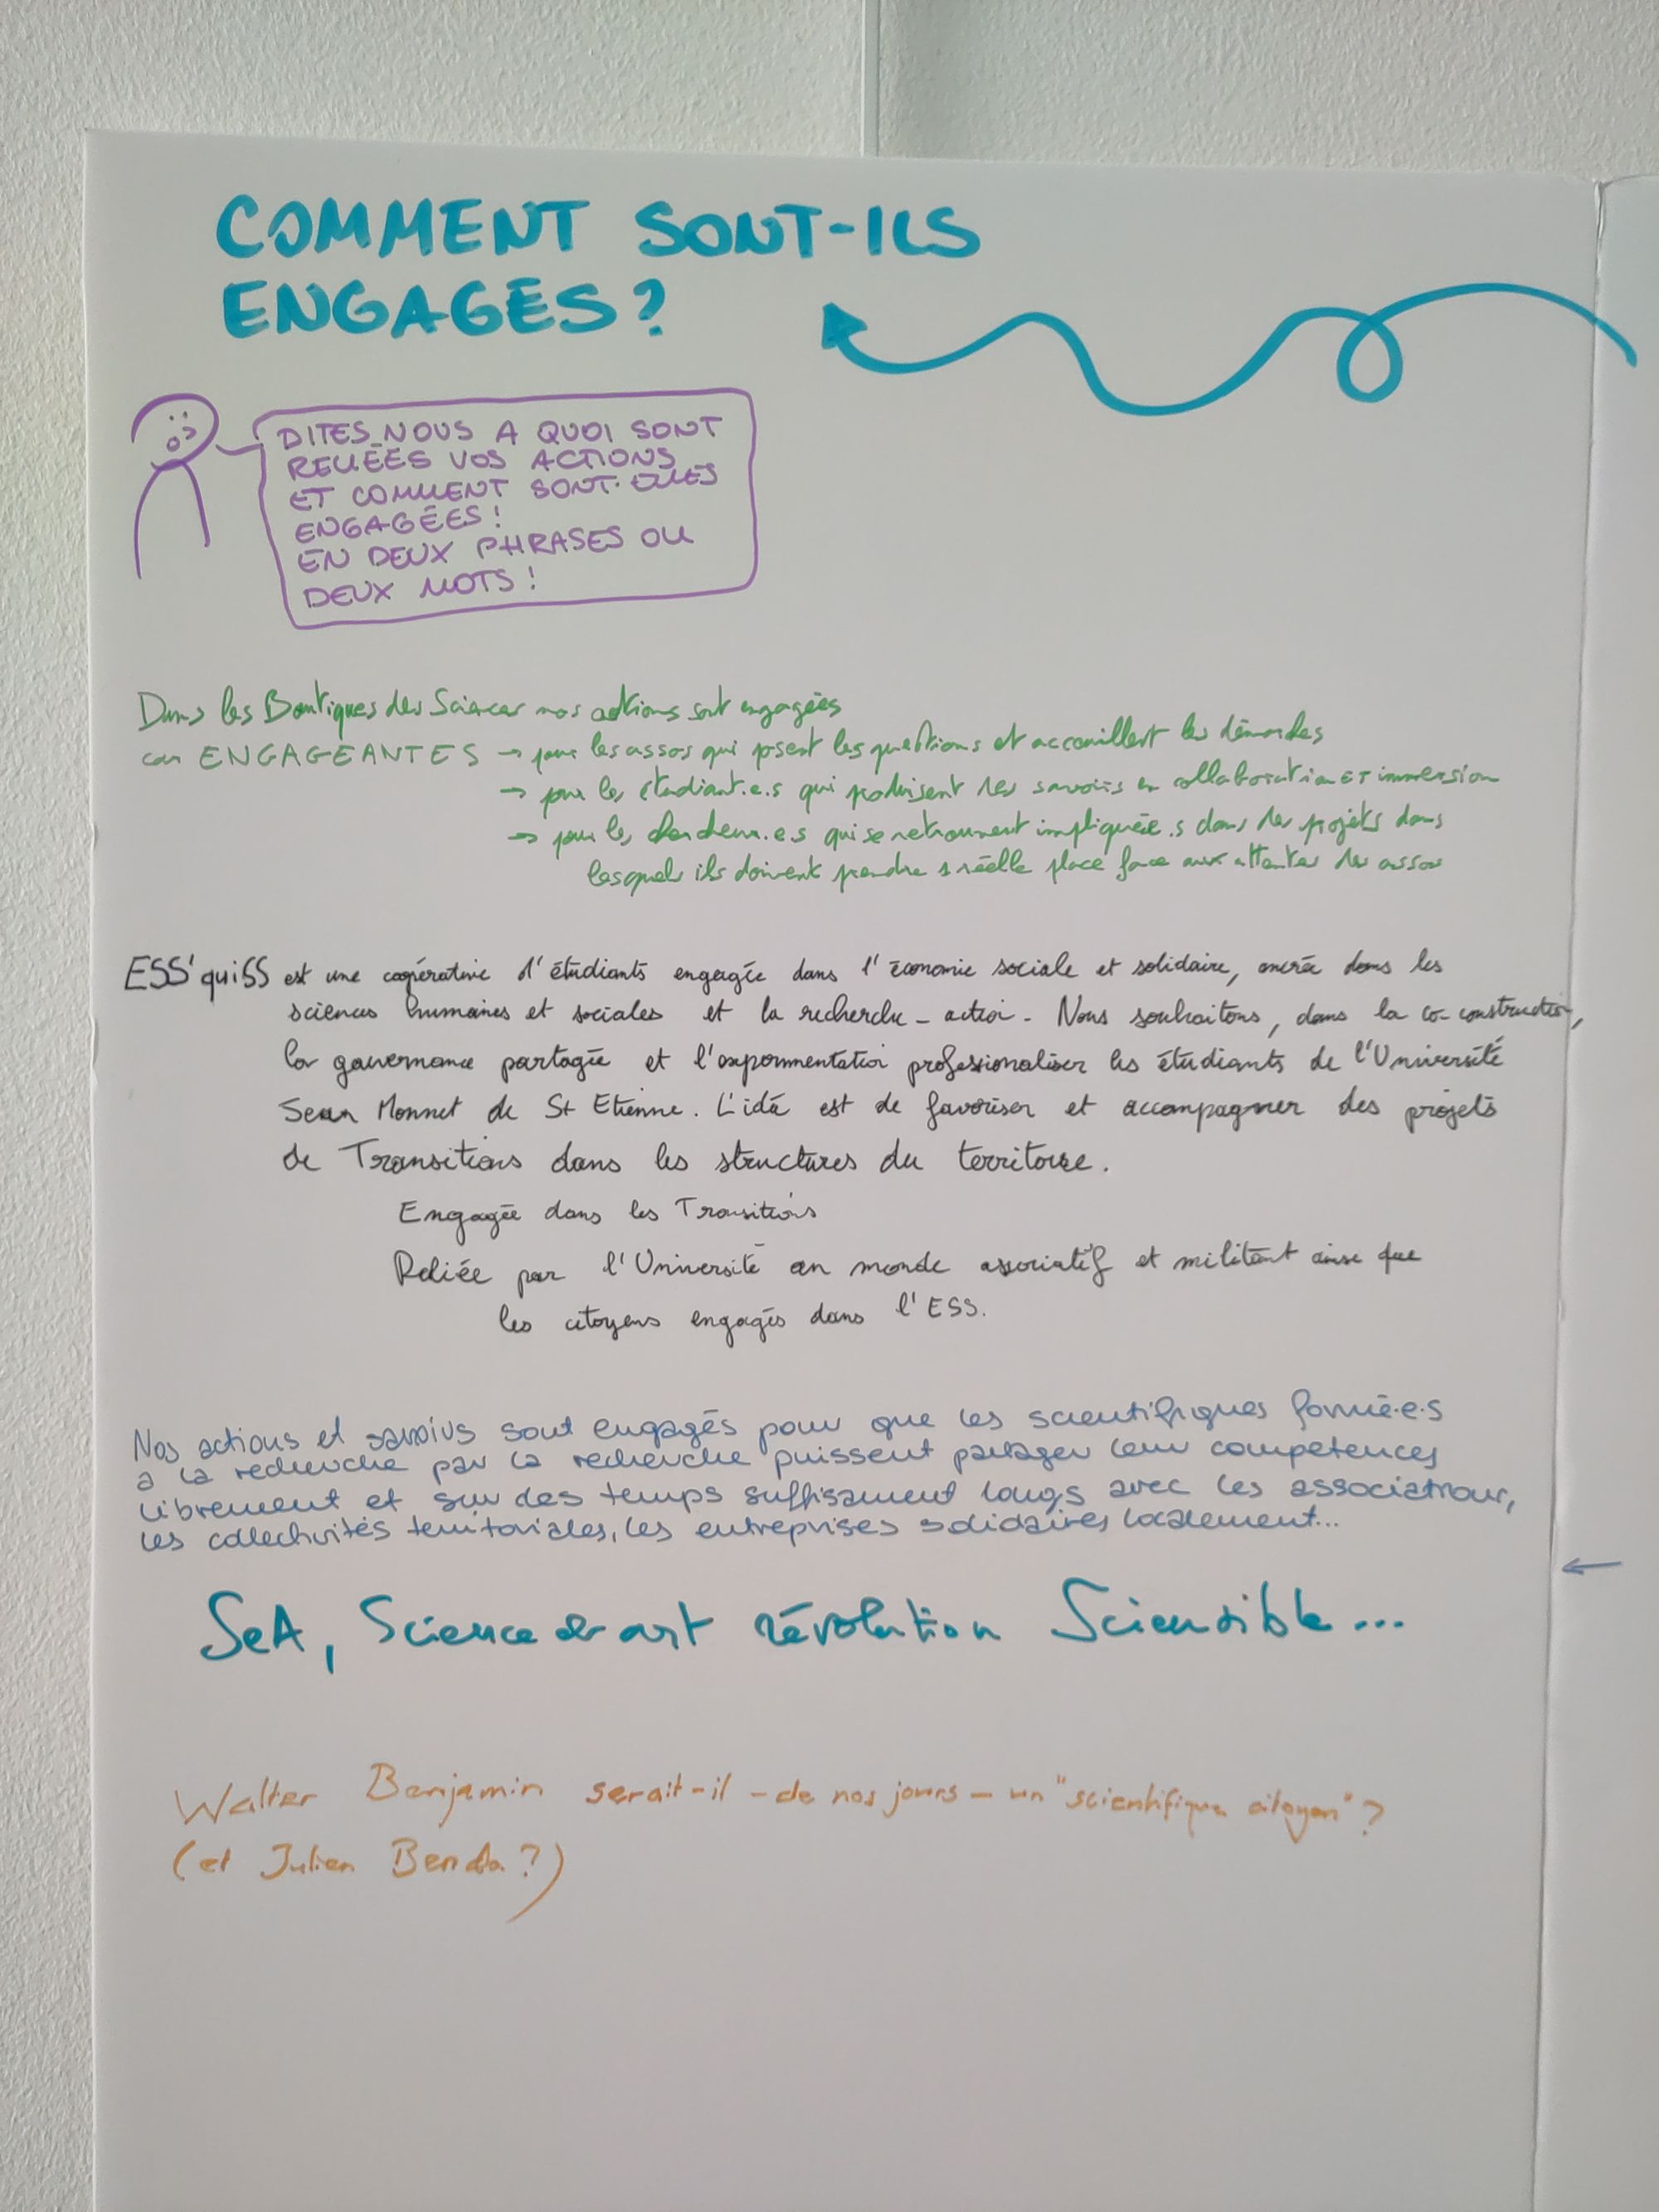 COMMENT SONT-ILS
ENGAGÉS ?
DITES-NOUS A QUOI SONT
RELIÉES VOS ACTIONS
ET COMMENT SONT-ELLES
ENGAGÉES !
EN DEUX PHRASES OU
DEUX MOTS !
Dans les Boutiques des Sciences nos actions sont engagées
car ENGAGEANTES → pour les assos qui posent les questions et accueillent les démarches
→ pour les étudiant.e.s qui produisent des savoirs en collaboration ET immersion
→ pour les chercheur.e.s qui se retrouvent impliqué.e.s dans des projets dans
lesquels ils doivent prendre 1 réelle place face aux attentes des assos
ESS'quiSS est une coopérative d'étudiants engagée dans l'économie sociale et solidaire, ancrée dans les
sciences humaines et sociales et la recherche-action. Nous souhaitons, dans la co-construction,
la gouvernance partagée et l'expérimentation professionaliser les étudiants de l'Université
Jean Monnet de St Etienne. L'idée est de favoriser et accompagner des projets
de Transitions dans les structures du territoire.
Engagée dans les Transitions
Reliée par l'Université au monde associatif et militant ainsi que
les citoyens engagés dans l'ESS.
Nos actions et savoirs sont engagés pour que les scientifiques formé.e.s
a la recherche par la recherche puissent partager leur compétences
librement et sur des temps suffisament longs avec les associations,
les collectivités territoriales, les entreprises solidaires localement...
SeA, Science & art révolution Sciensible...
Walter Benjamin serait-il - de nos jours - un "scientifique citoyen" ?
(et Julien Benda ?)
←